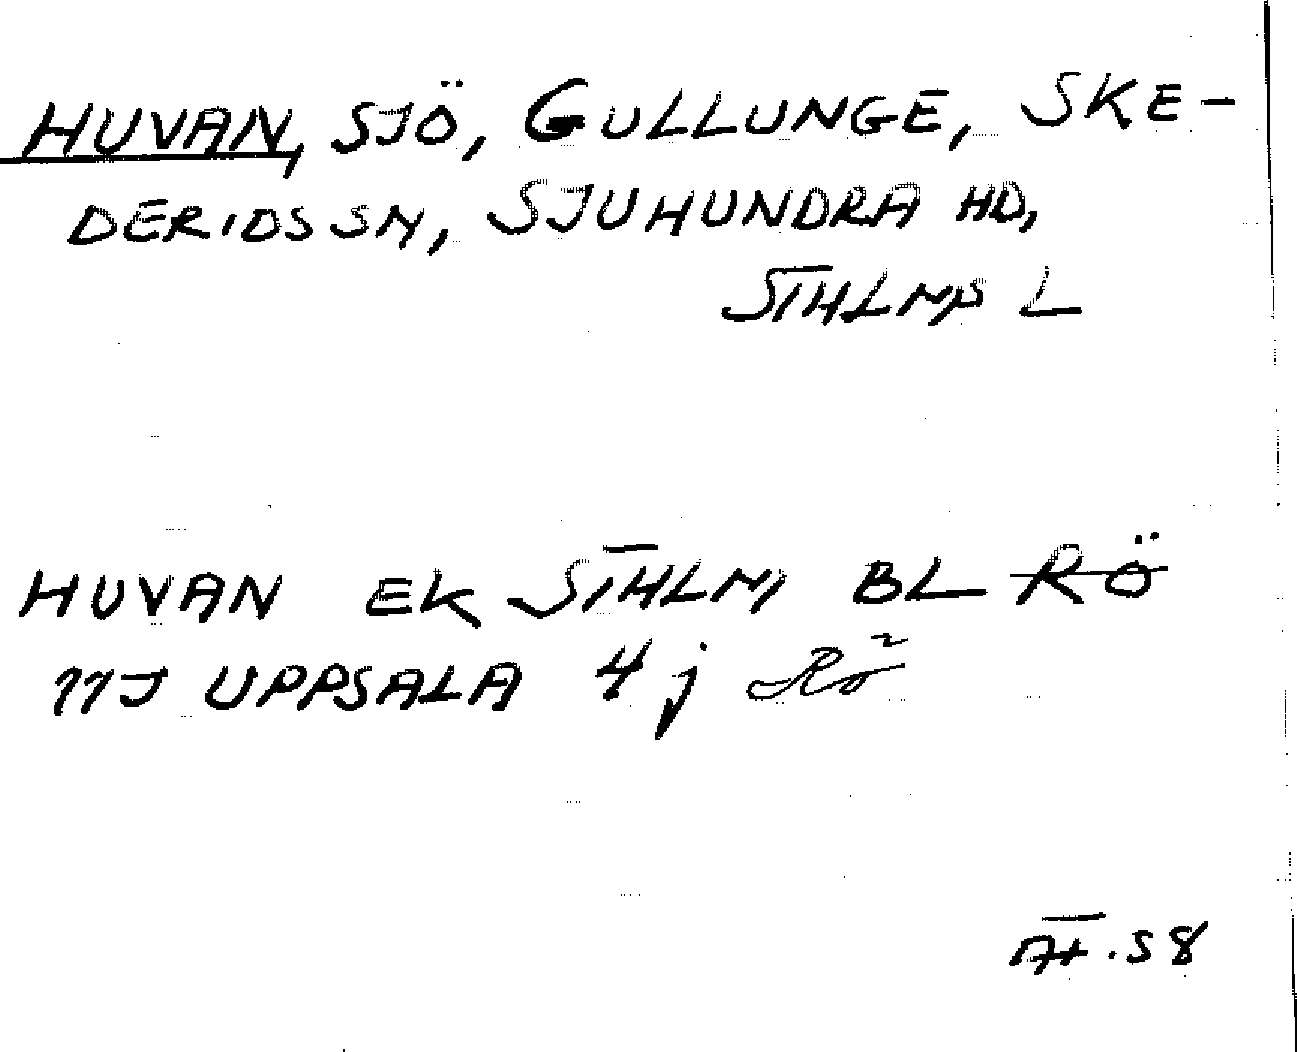 HUVAN, SJÖ, GULLUNGE, SKE-
DERIDS SN, SJUHUNDRA HD,
STHLMS L
HUVAN EK STHLM BL RÖ
11J UPPSALA 4 j Rö
.58